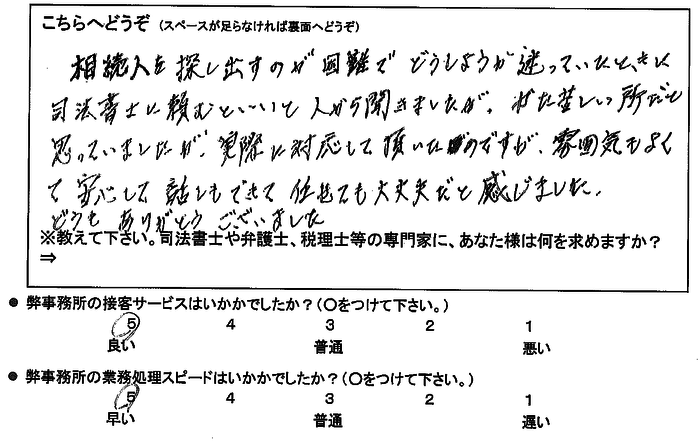 こちらへどうぞ（スペースが足らなければ裏面へどうぞ）
相続人を探し出すのが困難で どうしようか迷っていたときに
司法書士に頼むといいと人から聞きましたが、 苦しい所だと
思っていましたが、実際に対応して頂いた のですが、雰囲気もよく
て安心して話しもできて 任せても大丈夫だと感じました。
どうも ありがとう ございました
※教えて下さい。司法書士や弁護士、税理士等の専門家に、あなた様は何を求めますか？
⇒
● 弊事務所の接客サービスはいかかでしたか？（〇をつけて下さい。）
5 4 3 2 1
良い 普通 悪い
● 弊事務所の業務処理スピードはいかかでしたか？（〇をつけて下さい。）
5 4 3 2 1
早い 普通 遅い